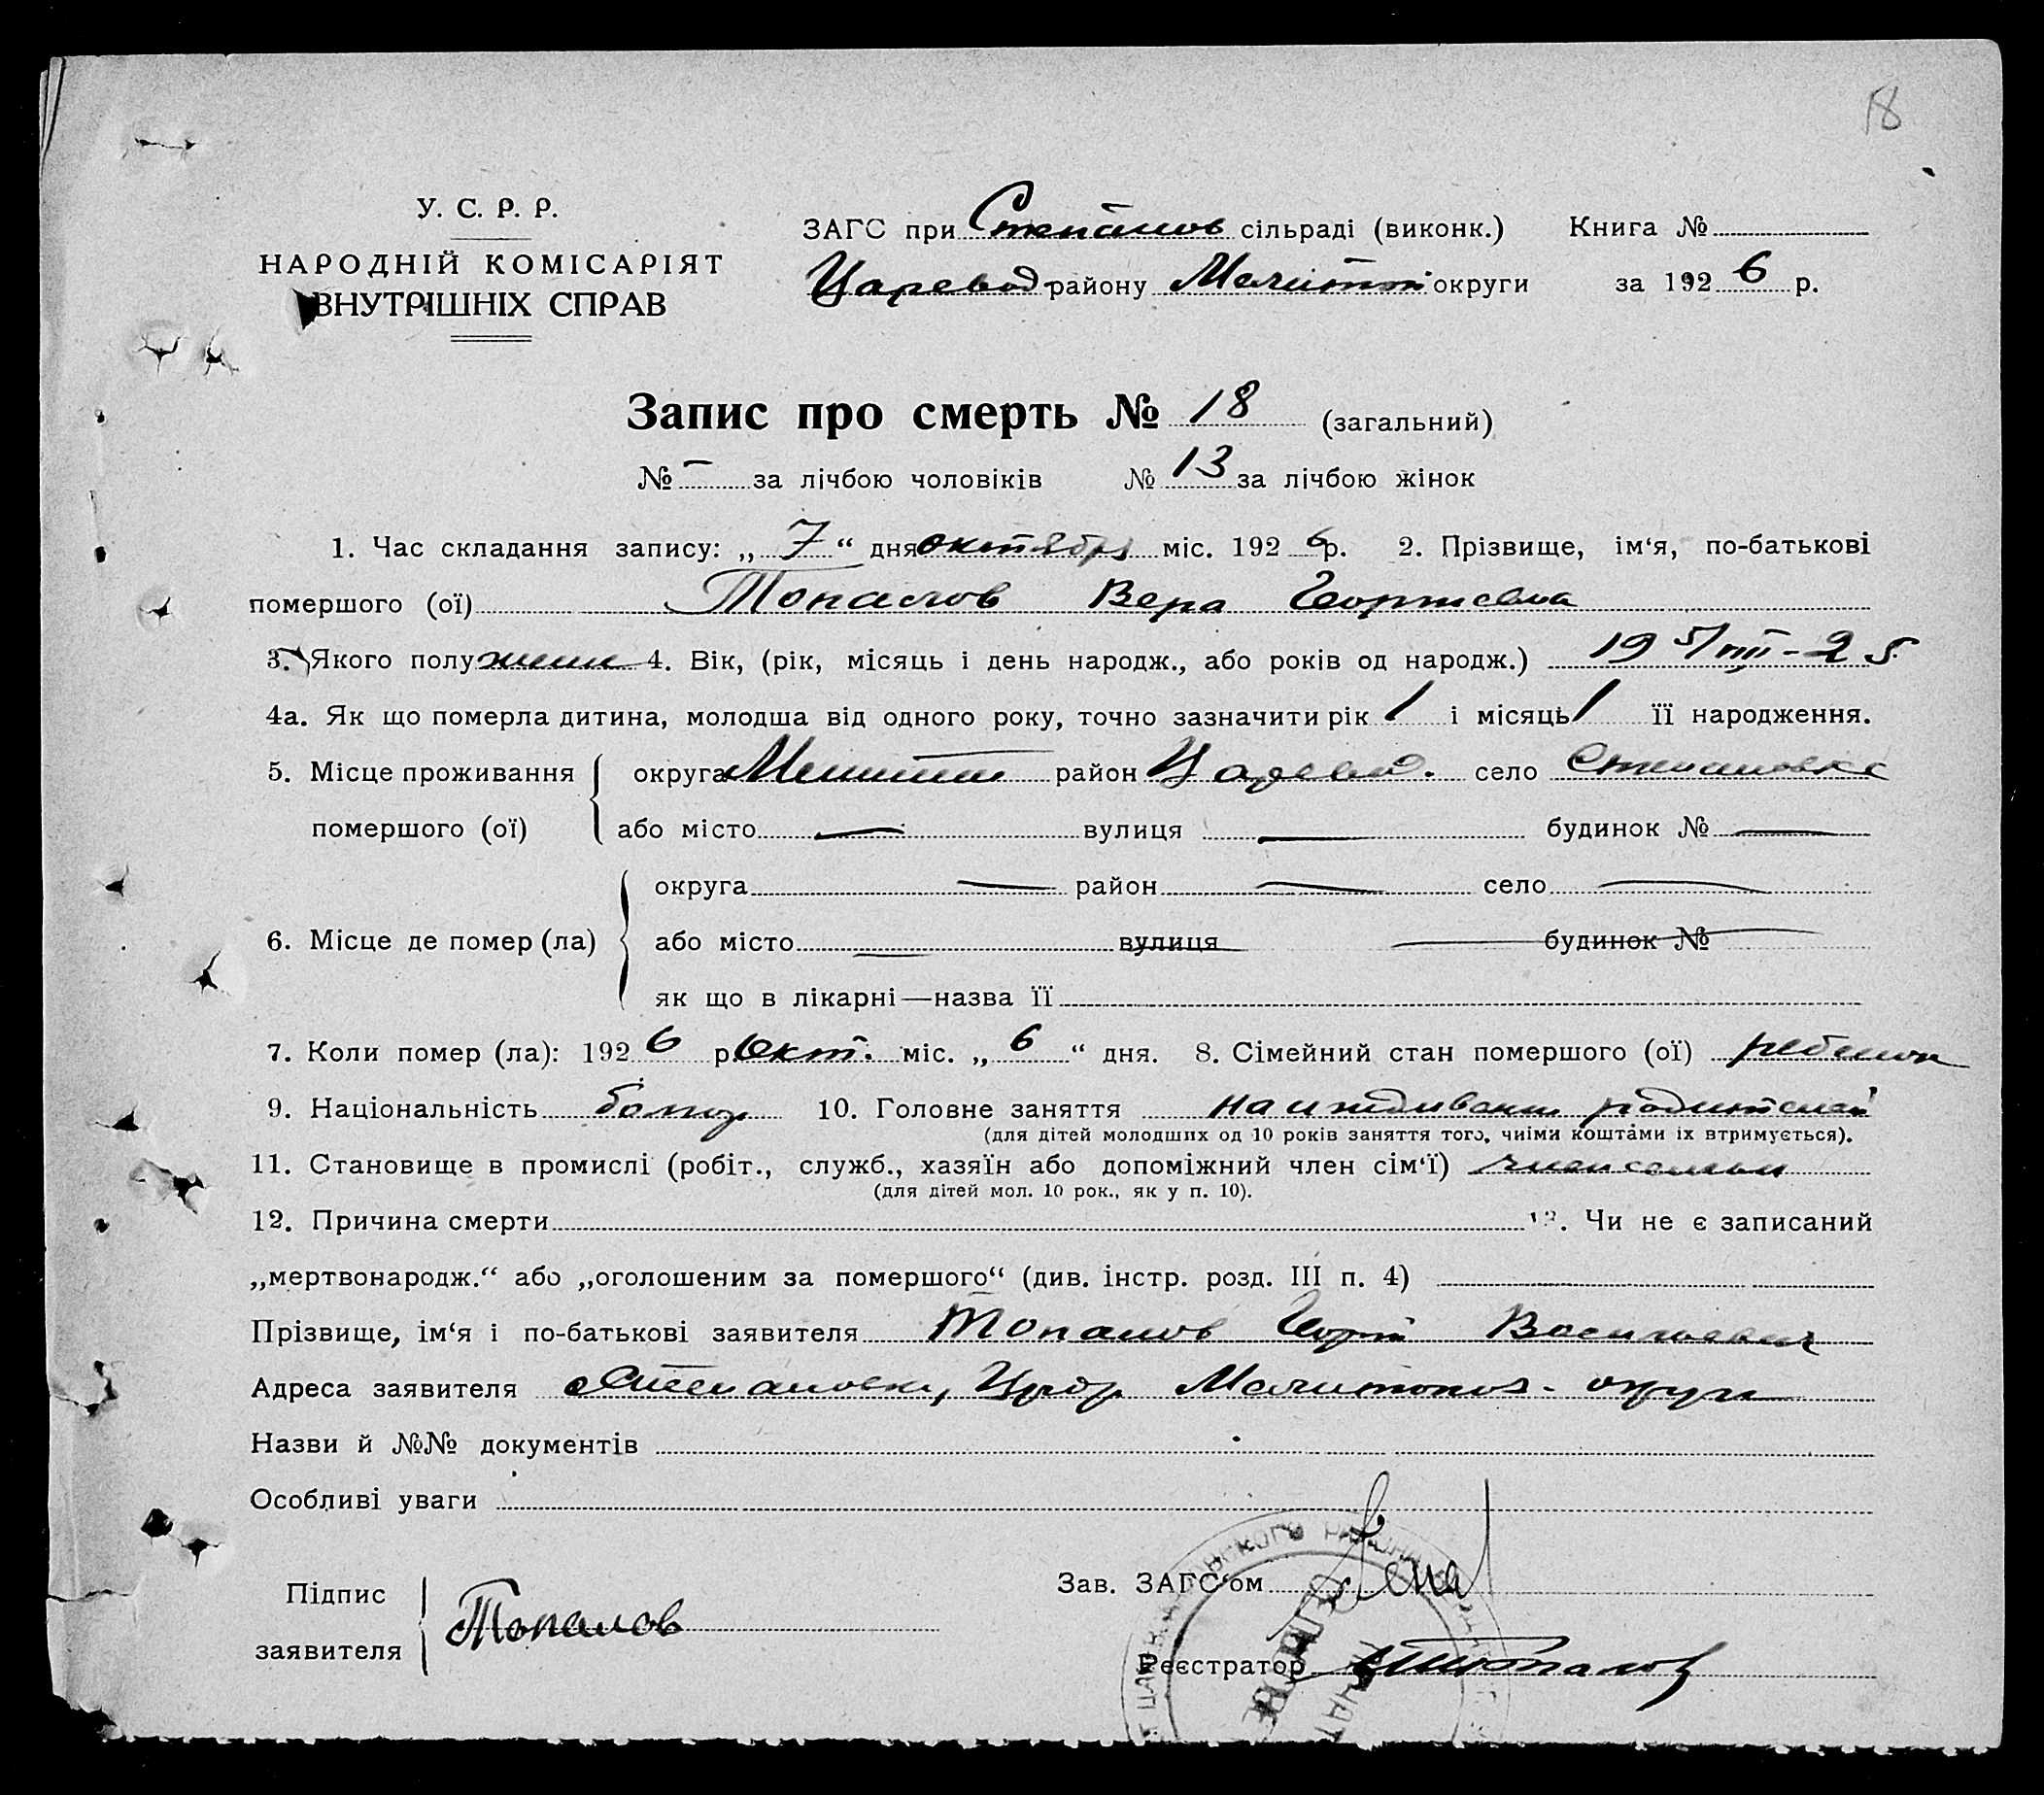 18
У. С. Р. Р.
НАРОДНІЙ КОМІСАРІЯТ
ВНУТРІШНІХ СПРАВ
ЗАГС при Степанов сільраді (виконк.) Книга №
Царевод району Мелитоп округи за 1926 р.
Запис про смерть № 18 (загальний)
№ — за лічбою чоловіків № 13 за лічбою жінок
1. Час складання запису: „7“ дня октября міс. 1926 р. 2. Прізвище, ім‘я, по-батькові
помершого (ої) Топалов Вера Георгиевна
3. Якого полу женс 4. Вік, (рік, місяць і день народж., або років од народж.) 19 5/VIII-25
4а. Як що померла дитина, молодша від одного року, точно зазначити рік 1 і місяць 1 її народження.
5. Місце проживання округа Мелитоп район Царевод. село Степановка
помершого (ої) або місто — вулиця — будинок № —
округа — район — село —
6. Місце де помер (ла) або місто — вулиця — будинок №
як що в лікарні—назва її
7. Коли помер (ла): 1926 р. Окт. міс. „6“ дня. 8. Сімейний стан помершого (ої) ребенок
9. Національність болгар 10. Головне заняття на иждивении родителей
(для дітей молодших од 10 років заняття того, чиїми коштами їх втримується).
11. Становище в промислі (робіт., служб., хазяїн або допоміжний член сім‘ї) член семьи
(для дітей мол. 10 рок., як у п. 10).
12. Причина смерти 13. Чи не є записаний
„мертвонародж.“ або „оголошеним за помершого“ (див. інстр. розд. III п. 4)
Прізвище, ім‘я і по-батькові заявителя Топалов Георгий Васильевич
Адреса заявителя Степановка, Мелитопол. округи
Назви й №№ документів
Особливі уваги
Підпис
заявителя Топалов
Зав. ЗАГС‘ом
Реєстратор Топалов